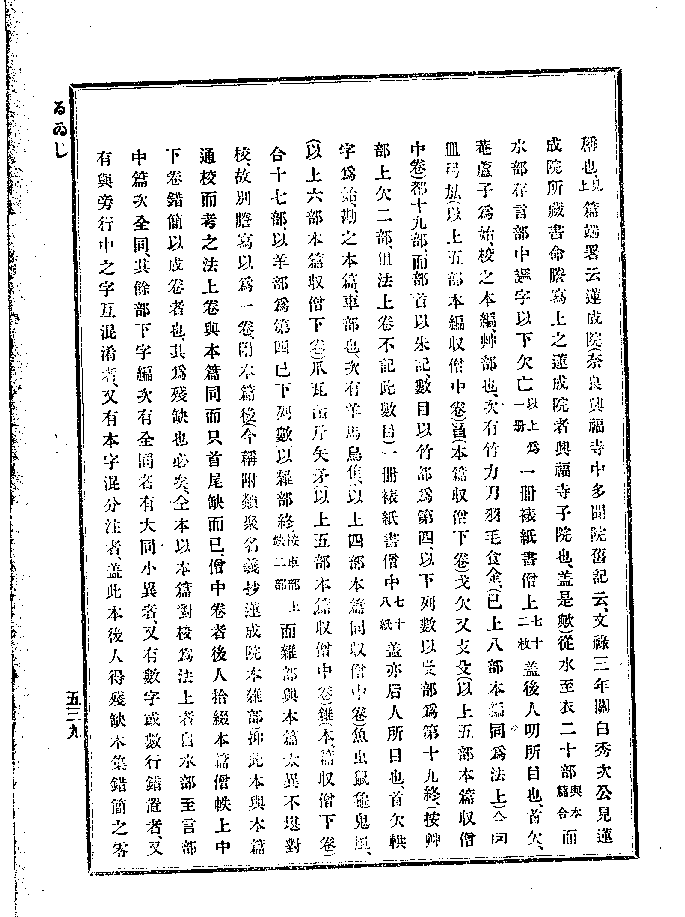 稱也、見上篇端署云蓮成院(奈良興福寺中多聞院舊記云、文祿三年關白秀次公見蓮
成院所藏書命謄寫上之蓮成院者興福寺子院也、蓋是歟)從水至衣二十部與本篇合而
水部存言部中字以下欠亡以上爲一册一冊裱紙書僧上七十二枚蓋後人明所目也、首欠、
菴蘆子爲始、校之本編、艸部也、次有竹力刀羽毛食金、(已上八部本編同爲法上)
皿弓(以上五部本編収僧中卷)(本篇収僧下卷)戈欠又支殳(以上五部本篇収僧
中卷)都十九部、而部首以朱記數目以竹部爲第四以下列數以部爲第十九終、(按艸
部上欠二部、法上卷不記此數目)一冊裱紙書僧中七十八紙蓋亦后人所目也、首欠
字爲始、勘之本篇、車部也、次有羊馬鳥隹、(以上四部本篇同収僧中卷)魚虫鼠龜鬼風、
(以上六部本篇収僧下卷)爪瓦斤矢矛(以上五部本篇収僧中卷)雜(本篇収僧下卷)
合十七部、以羊部爲第四已下列數以雜部終按車部上欠二部而雜部與本篇大異不堪對
校、故別謄寫以爲一卷、附本篇後、今稱附類聚名義抄蓮成院本雜部抑此本與本篇
通校而考之法上卷與本篇同而只首尾缺而已、僧中卷者後人拾綴本篇僧帙上中
下卷錯簡以成卷者也、其爲殘缺也必矣、仝本以本篇對校爲法上者自水部至言部
中篇次全同、其餘部下字編次有全同者有大同小異者、又有數字或數行錯置者、又
有與旁行中之字互混淆者、又有本字混分注者、蓋此本後人得殘缺本集錯簡之零
るゐし
五三九